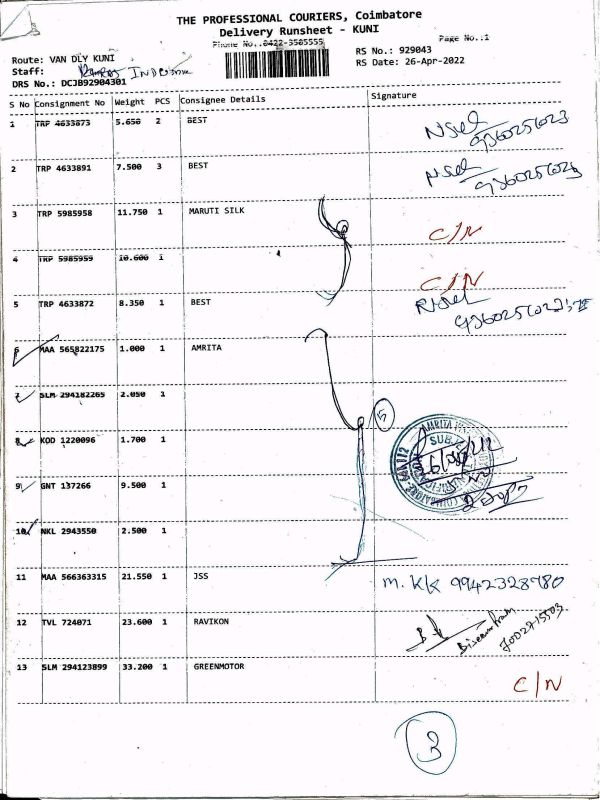 THE PROFESSIONAL COURIERS, Coimbatore
Delivery Runsheet - KUNI
Phone No.:0422-3505555 Page No.:1
Route: VAN DLY KUNI RS No.: 929043
Staff: RS Date: 26-Apr-2022
DRS No.: DCJB92904301
S No Consignment No Weight PCS Consignee Details Signature
1 TRP 4633873 5.650 2 BEST
2 TRP 4633891 7.500 3 BEST
3 TRP 5985958 11.750 1 MARUTI SILK C/N
4 TRP 5985959 10.600 1 C/N
5 TRP 4633872 8.350 1 BEST
6 MAA 565822175 1.000 1 AMRITA
7 SLM 294182265 2.050 1
5
8 KOD 1220096 1.700 1
9 GNT 137266 9.500 1
10 NKL 2943550 2.500 1
11 MAA 566363315 21.550 1 JSS m. KK 9942328780
12 TVL 724071 23.600 1 RAVIKON
13 SLM 294123899 33.200 1 GREENMOTOR C/N
3